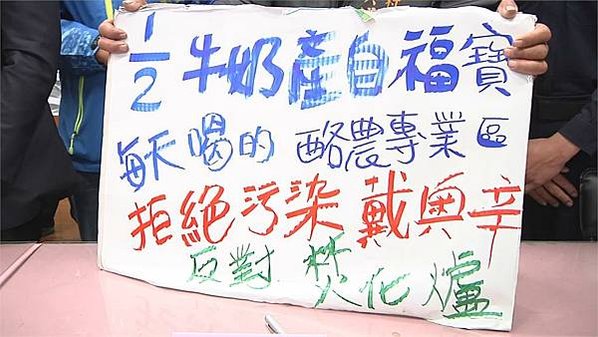 1/2 牛奶產自福寶
每天喝的 酪農專業區
拒絕污染 戴奧辛
反對 焚化爐